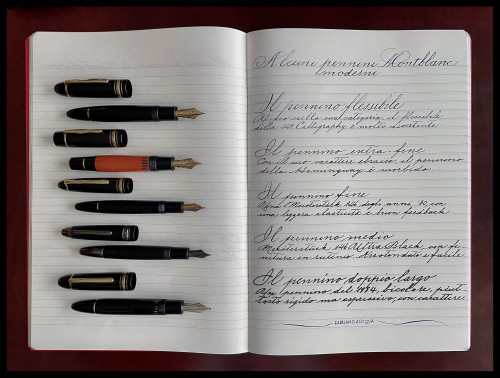 Alcuni pennini Montblanc
moderni
Il pennino flessibile
nella sua categoria, il flessibile
della 149 Calligraphy è molto divertente
Il pennino extra-fine
Con il suo carattere ebraico, il pennino
della Hemingway è morbido
Il pennino fine
Meisterstück 146 degli anni '80 con
una leggera elasticità e buon feedback
Il pennino medio
Meisterstück 146 Ultra Black, con fi-
nitura in rutenio. Arrotondato e facile
Il pennino doppio largo
pennino del 1984, bicolore, piut-
tosto rigido ma espressivo, con carattere.